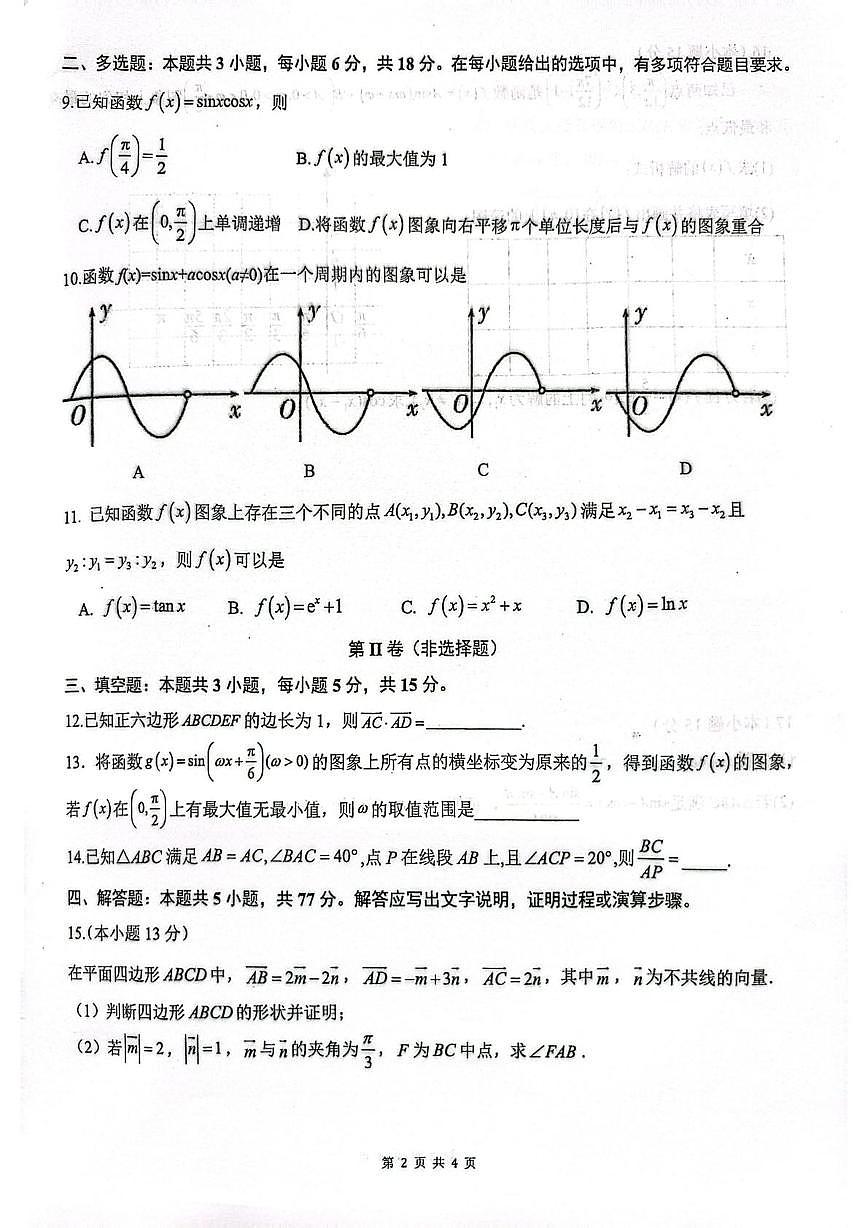 二、多选题：本题共 3 小题，每小题 6 分，共 18 分。在每小题给出的选项中，有多项符合题目要求。
9.已知函数 f(x)=sinxcosx，则
A. f(π/4)=1/2 B. f(x)的最大值为 1
C. f(x)在(0,π/2)上单调递增 D.将函数 f(x)图象向右平移π个单位长度后与 f(x)的图象重合
10.函数 f(x)=sinx+acosx(a≠0)在一个周期内的图象可以是
y y y y
O x O x O x O x
A B C D
11. 已知函数 f(x)图象上存在三个不同的点 A(x₁,y₁),B(x₂,y₂),C(x₃,y₃)满足 x₂-x₁=x₃-x₂且
y₂:y₁=y₃:y₂，则 f(x)可以是
A. f(x)=tanx B. f(x)=eˣ+1 C. f(x)=x²+x D. f(x)=lnx
第 II 卷（非选择题）
三、填空题：本题共 3 小题，每小题 5 分，共 15 分。
12.已知正六边形 ABCDEF 的边长为 1，则 AC·AD=________.
13. 将函数 g(x)=sin(ωx+π/6)(ω>0)的图象上所有点的横坐标变为原来的1/2，得到函数 f(x)的图象，
若 f(x)在(0,π/2)上有最大值无最小值，则ω的取值范围是________
14.已知△ABC 满足 AB=AC,∠BAC=40°,点 P 在线段 AB 上,且∠ACP=20°,则 BC/AP=____.
四、解答题：本题共 5 小题，共 77 分。解答应写出文字说明，证明过程或演算步骤。
15.(本小题 13 分）
在平面四边形 ABCD 中，AB=2m-2n，AD=-m+3n，AC=2n，其中 m，n 为不共线的向量.
（1）判断四边形 ABCD 的形状并证明；
（2）若|m|=2，|n|=1，m 与 n 的夹角为π/3，F 为 BC 中点，求∠FAB．
第 2 页 共 4 页